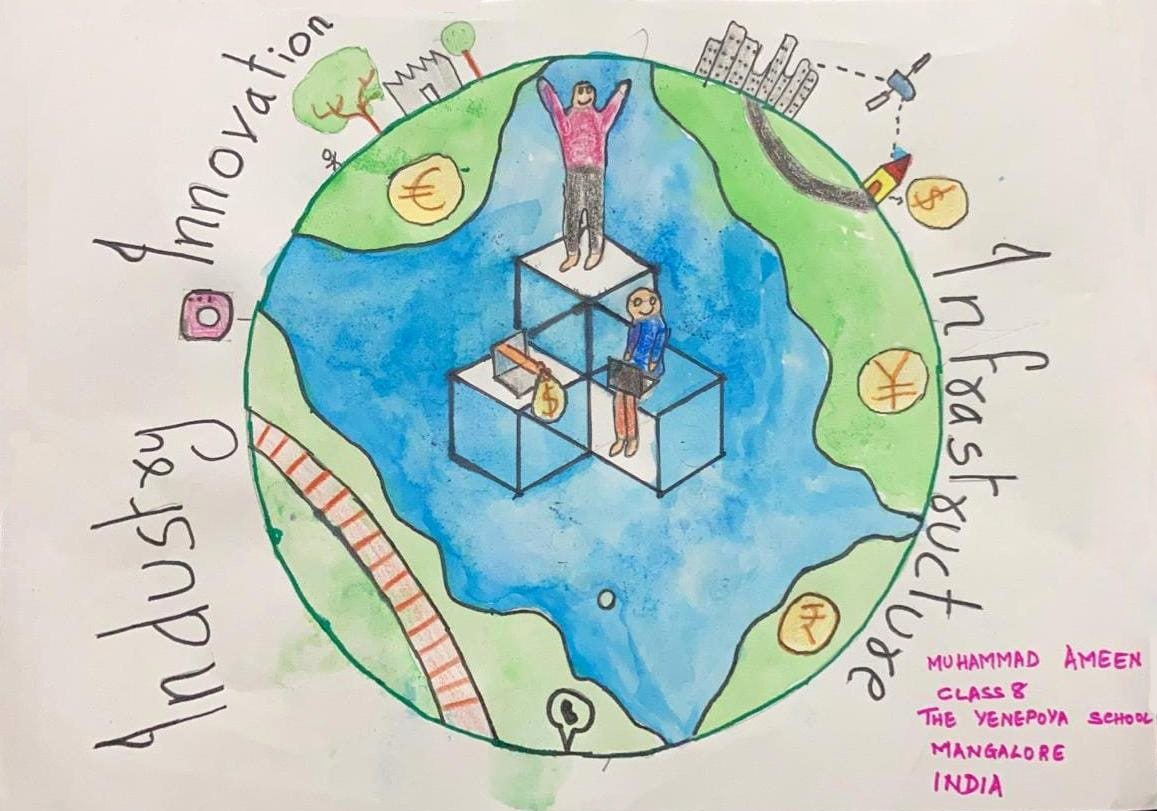 Industry
Innovation
Infrastructure
€
$
$
¥
₹
MUHAMMAD AMEEN
CLASS 8
THE YENEPOYA SCHOOL
MANGALORE
INDIA